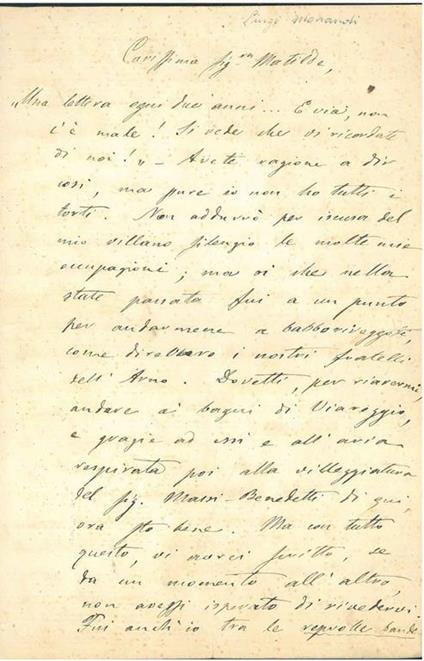 Luigi Morandi
Carissima Sig.ra Matilde,
„Una lettera ogni due anni... E via, non
c'è male! Si vede che vi ricordate
di noi!„ — Avete ragione a dir
così, ma pure io non ho tutti i
torti. Non addurrò per iscusa del
mio villano silenzio le molte mie
occupazioni; ma sì che nella
state passata fui a un punto
per andarmene a babboriveggoli,
come direbbero i nostri fratelli
dell'Arno. Dovetti, per riavermi,
andare ai bagni di Viareggio,
e grazie ad essi e all'aria
respirata poi alla villeggiatura
del sig. Massi-Benedetti di qui,
ora sto bene. Ma con tutto
questo, vi avrei scritto, se
da un momento all'altro,
non avessi sperato di rivedervi.
Fui anch'io tra le bande